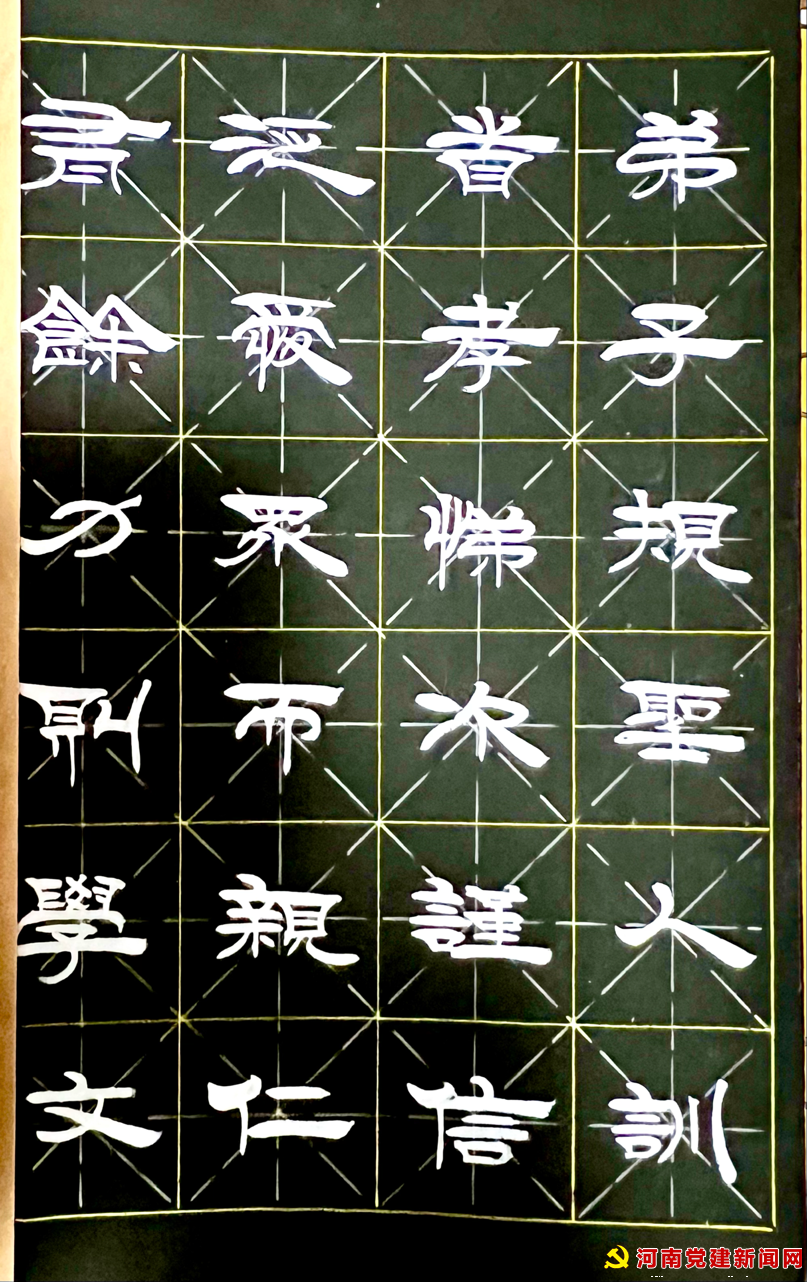 弟子規聖人訓
首孝悌次謹信
泛愛眾而親仁
有餘力則學文
河南党建新闻网